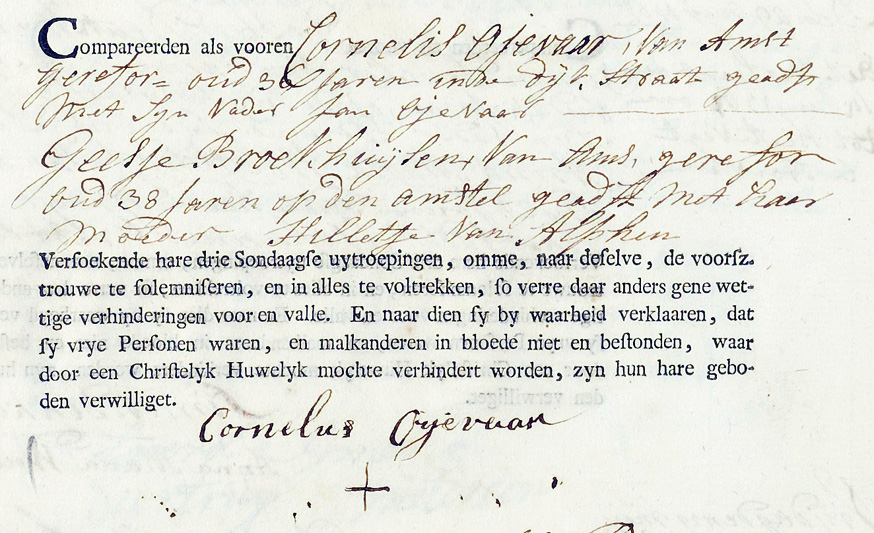 Compareerden als vooren Cornelis Ojevaar, Van Amst
gerefor= oud 36 Jaren in de Dijk Straat geadst
Met Syn Vader Jan Ojevaar
Geesje Broekhuijsen, Van Ams, gerefor
oud 38 Jaren op den amstel geadst Met haar
Moeder Hilletje Van Alphen
Verſoekende hare drie Sondaagſe uytroepingen, omme, naar deſelve, de voorſz.
trouwe te ſolemniſeren, en in alles te voltrekken, ſo verre daar anders gene wet-
tige verhinderingen voor en valle. En naar dien ſy by waarheid verklaaren, dat
ſy vrye Perſonen waren, en malkanderen in bloede niet en beſtonden, waar
door een Chriſtelyk Huwelyk mochte verhindert worden, zyn hun hare gebo-
den verwilliget.
Cornelus Oyevaar